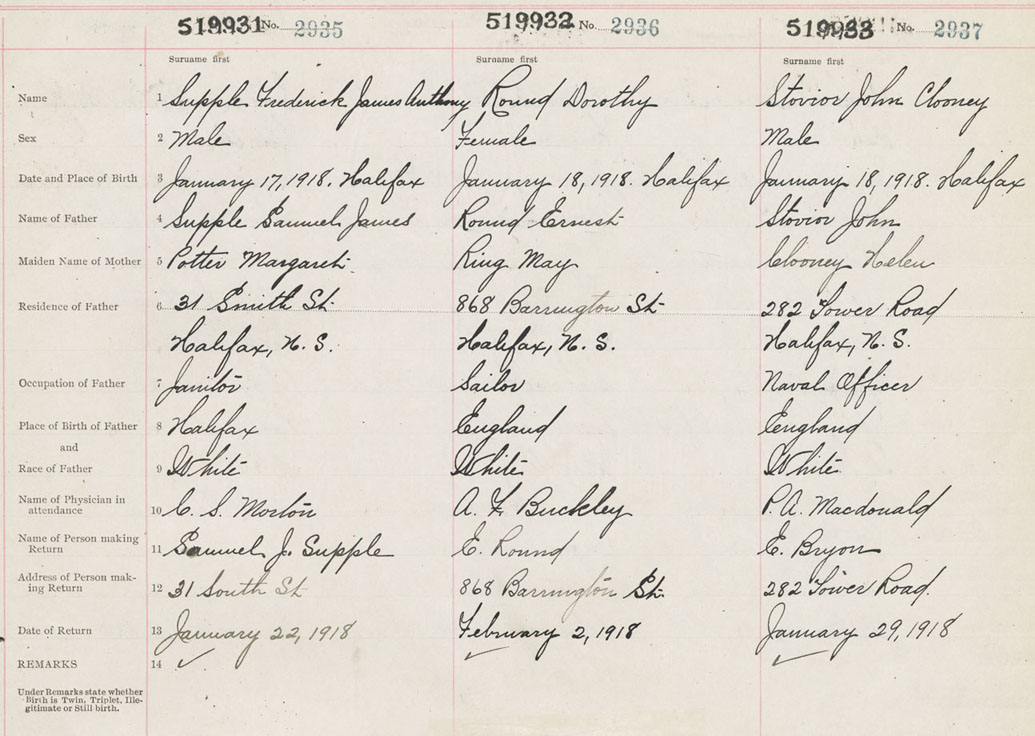 519931 No. 2935 519932 No. 2936 519933 No. 2937
Surname first Surname first Surname first
Name 1 Supple Frederick James Anthony Round Dorothy Stovior John Clooney
Sex 2 Male Female Male
Date and Place of Birth 3 January 17, 1918. Halifax January 18, 1918. Halifax January 18, 1918. Halifax
Name of Father 4 Supple Samuel James Round Ernest Stovior John
Maiden Name of Mother 5 Potter Margaret Ring May Clooney Helen
Residence of Father 6 31 Smith St 868 Barrington St 282 Tower Road
Halifax, N. S. Halifax, N. S. Halifax, N. S.
Occupation of Father 7 Janitor Sailor Naval Officer
Place of Birth of Father 8 Halifax England England
and
Race of Father 9 White White White
Name of Physician in
attendance 10 C. S. Morton A. F. Buckley P. A. Macdonald
Name of Person making
Return 11 Samuel J. Supple E. Round E. Bryon
Address of Person mak-
ing Return 12 31 South St 868 Barrington St. 282 Tower Road.
Date of Return 13 January 22, 1918 February 2, 1918 January 29, 1918
REMARKS 14 ✓ ✓ ✓
Under Remarks state whether
Birth is Twin, Triplet, Ille-
gitimate or Still birth.